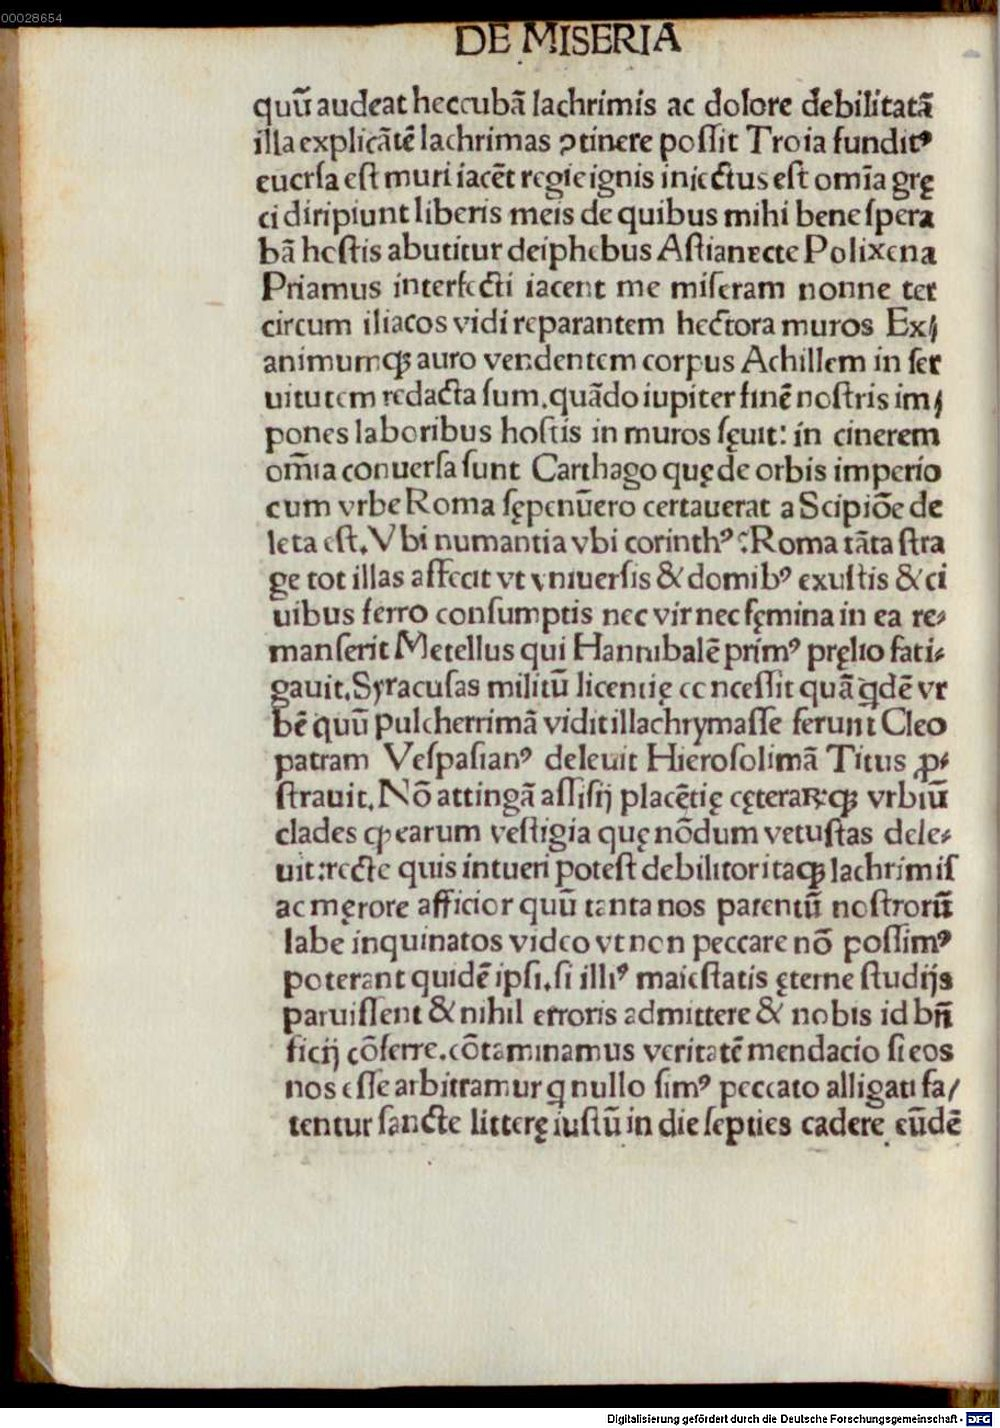 00028654
DE MISERIA
quū audeat heccubā lachrimis ac dolore debilitatā
illa explicātē lachrimas ꝯtinere poſſit Troia funditꝰ
euerſa eſt muri iacēt regie ignis iniectus eſt omīa grę
ci diripiunt liberis meis de quibus mihi bene ſpera
bā hoſtis abutitur deiphebus Aſtianecte Polixena
Priamus interfecti iacent me miſeram nonne ter
circum iliacos vidi reparantem hectora muros Ex⸗
animumqꝫ auro vendentem corpus Achillem in ſer
uitutem redacta ſum.quādo iupiter finē noſtris im⸗
pones laboribus hoſtis in muros ſęuit: in cinerem
om̄ia conuerſa ſunt Carthago quę de orbis imperio
cum vrbe Roma ſępenūero certauerat a Scipiōe de
leta eſt.Vbi numantia vbi corinthꝰ:Roma tāta ſtra
ge tot illas affecit vt vniuerſis & domibꝰ exuſtis & ci
uibus ferro conſumptis nec vir nec fęmina in ea re⸗
manſerit Metellus qui Hannibalē primꝰ pręlio fati⸗
gauit.Syracuſas militū licentię conceſſit quā qdē vr
bē quū pulcherrimā vidit illachrymaſſe ferunt Cleo
patram Veſpaſianꝰ deleuit Hieroſolimā Titus ꝓ⸗
ſtrauit.Nō attingā aſſiſij placētię cęteraꝝqꝫ vrbiū
clades ꝙ earum veſtigia quę nōdum vetuſtas dele⸗
uit:recte quis intueri poteſt debilitor itaqꝫ lachrimiſ
ac męrore afficior quū tanta nos parentū noſtrorū
labe inquinatos video vt non peccare nō poſſimꝰ
poterant quidē ipſi.ſi illiꝰ maieſtatis ęterne ſtudijs
paruiſſent & nihil erroris admittere & nobis id bn̄
ficij cōferre.cōtaminamus veritatē mendacio ſi eos
nos eſſe arbitramur q nullo ſimꝰ peccato alligati fa/
tentur ſancte litterę iuſtū in die ſepties cadere eūdē
Digitalisierung gefördert durch die Deutsche Forschungsgemeinschaft - DFG